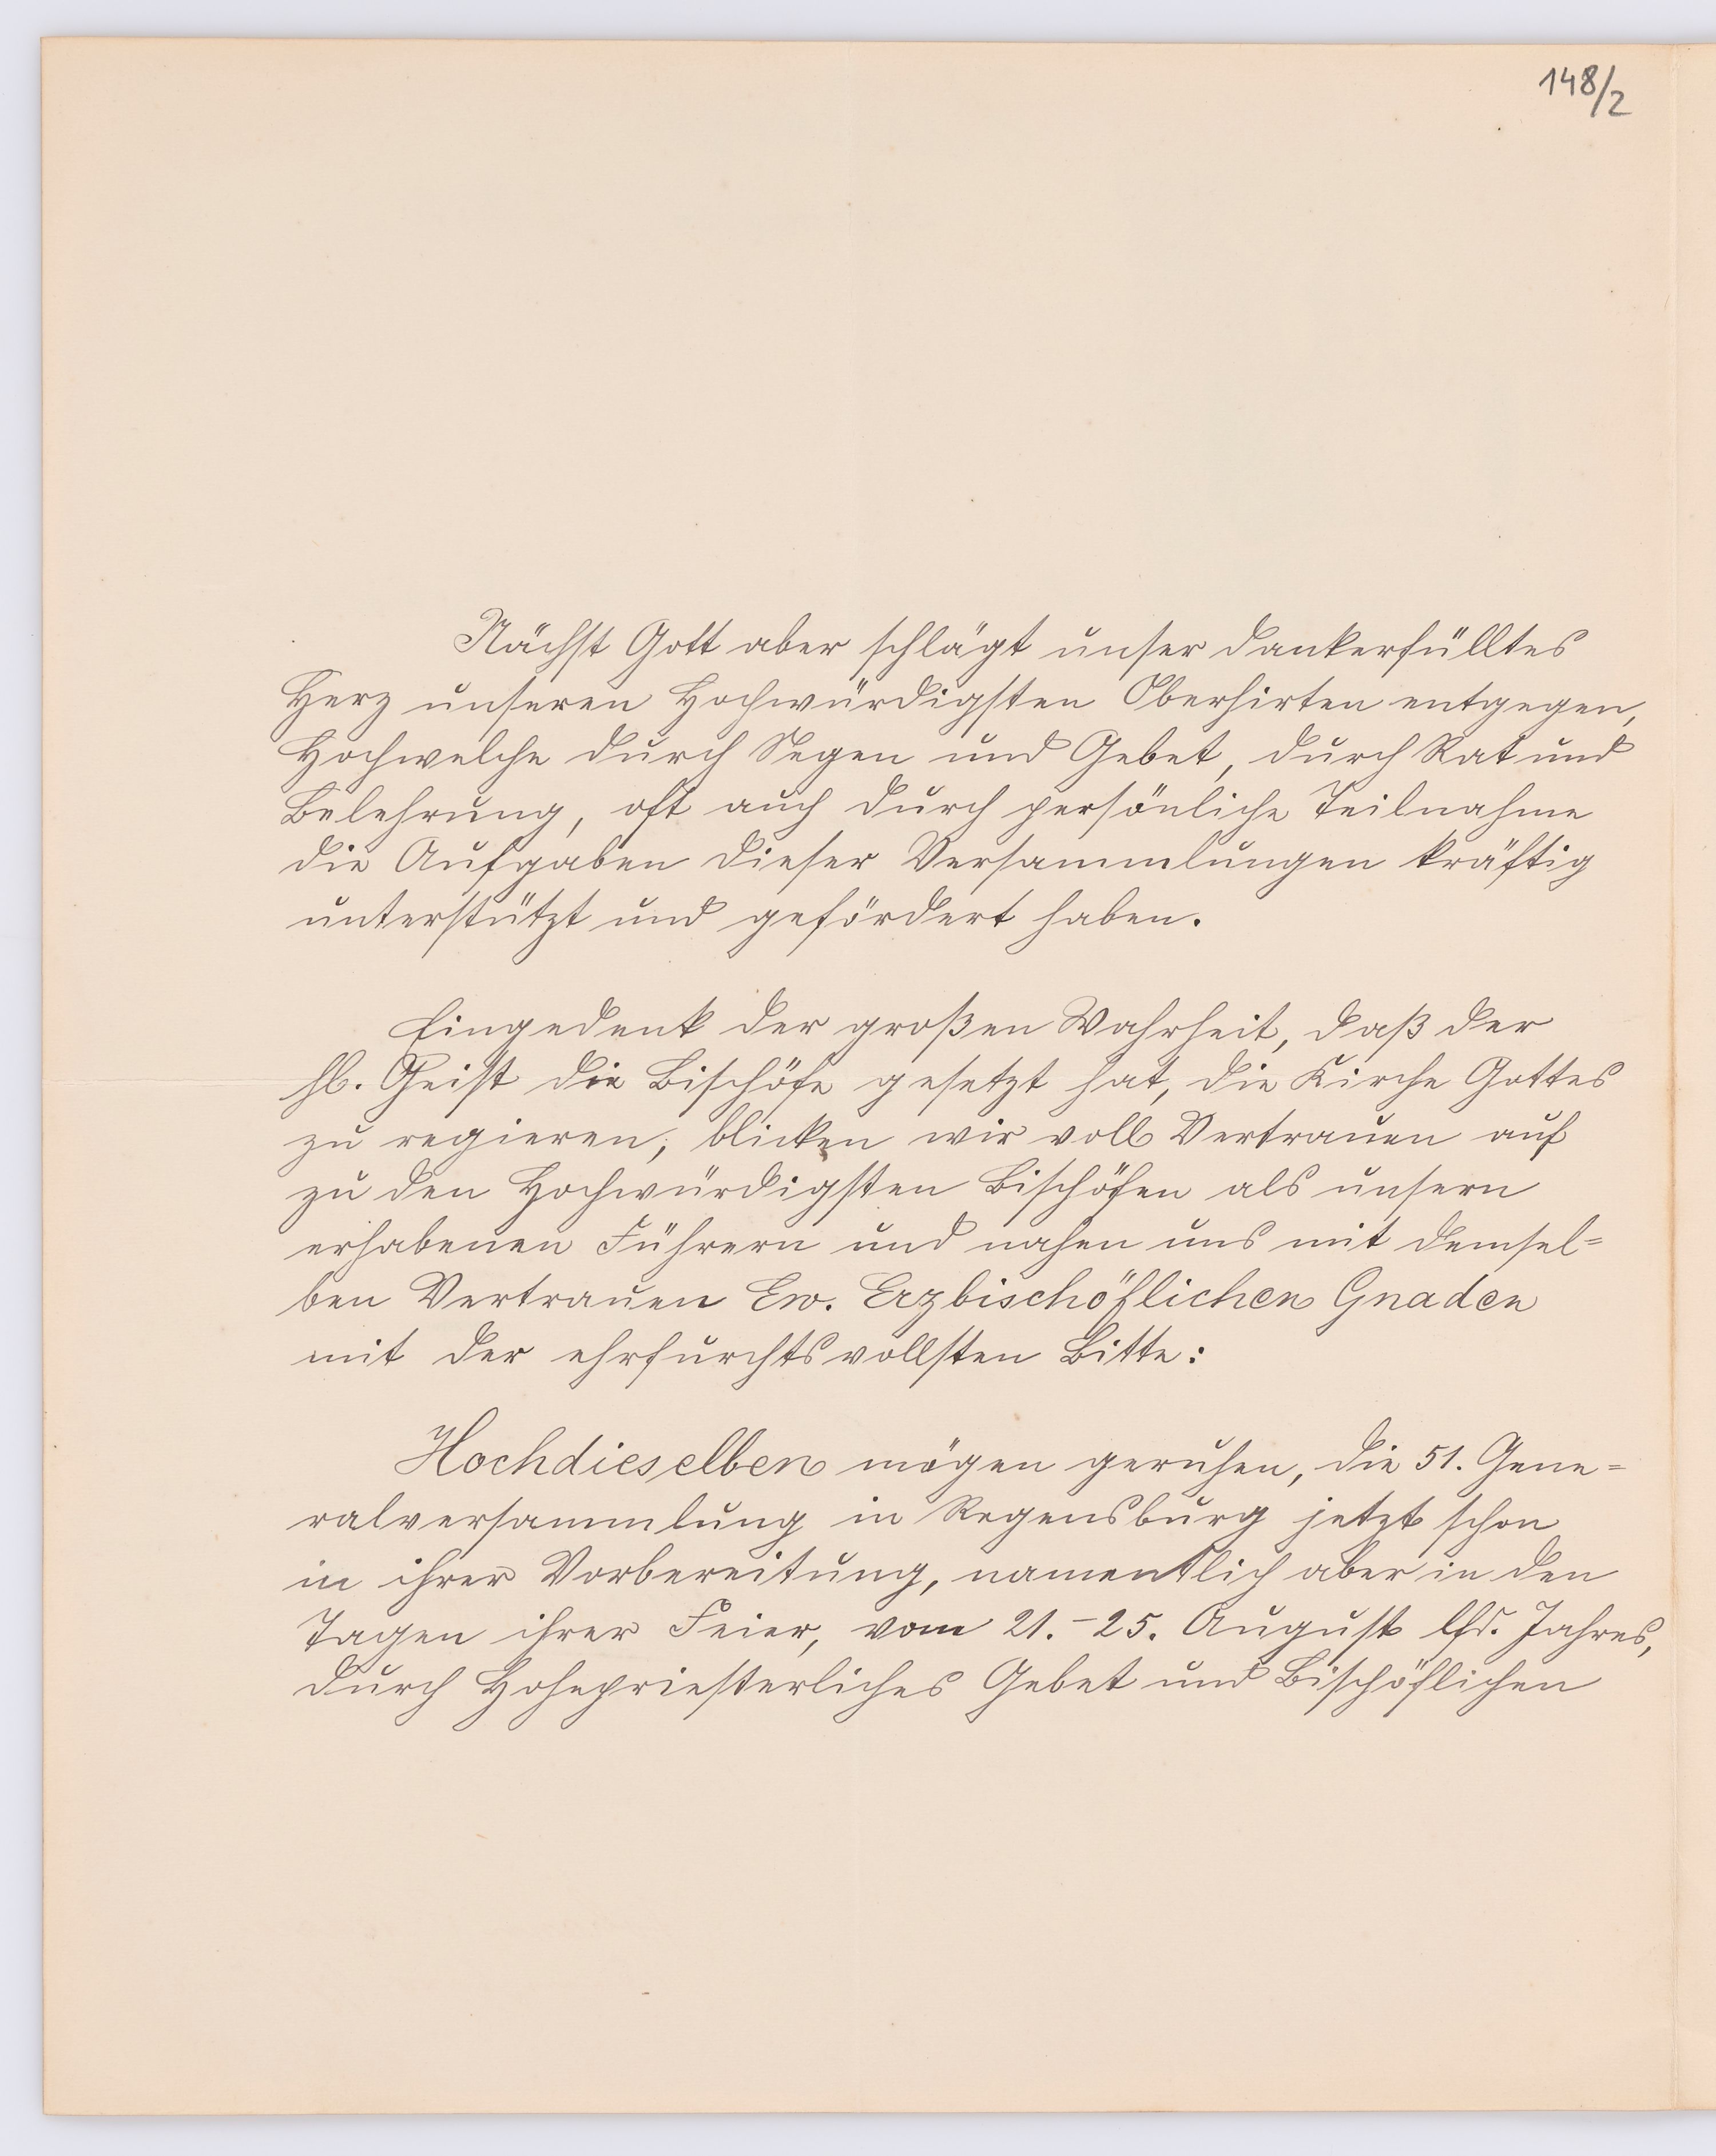 148/2
Nächst Gott aber schlägt unser dankerfülltes
Herz unseren Hochwürdigsten Oberhirten entgegen,
Hochwelche durch Segen und Gebet, durch Rat und
Belehrung, oft auch durch persönliche Teilnahme
die Aufgaben dieser Versammlungen kräftig
unterstützt und gefördert haben.
Eingedenk der großen Wahrheit, daß der
hl. Geist die Bischöfe gesetzt hat, die Kirche Gottes
zu regieren, blicken wir voll Vertrauen auf
zu den Hochwürdigsten Bischöfen als unsern
erhabenen Führern und nahen uns mit demsel=
ben Vertrauen Ew. Erzbischöflichen Gnaden
mit der ehrfurchtsvollsten Bitte:
Hochdieselben mögen geruhen, die 51. Gene=
ralversammlung in Regensburg jetzt schon
in ihrer Vorbereitung, namentlich aber in den
Tagen ihrer Feier, vom 21.-25. August lfd. Jahres,
durch Hohepriesterliches Gebet und Bischöflichen